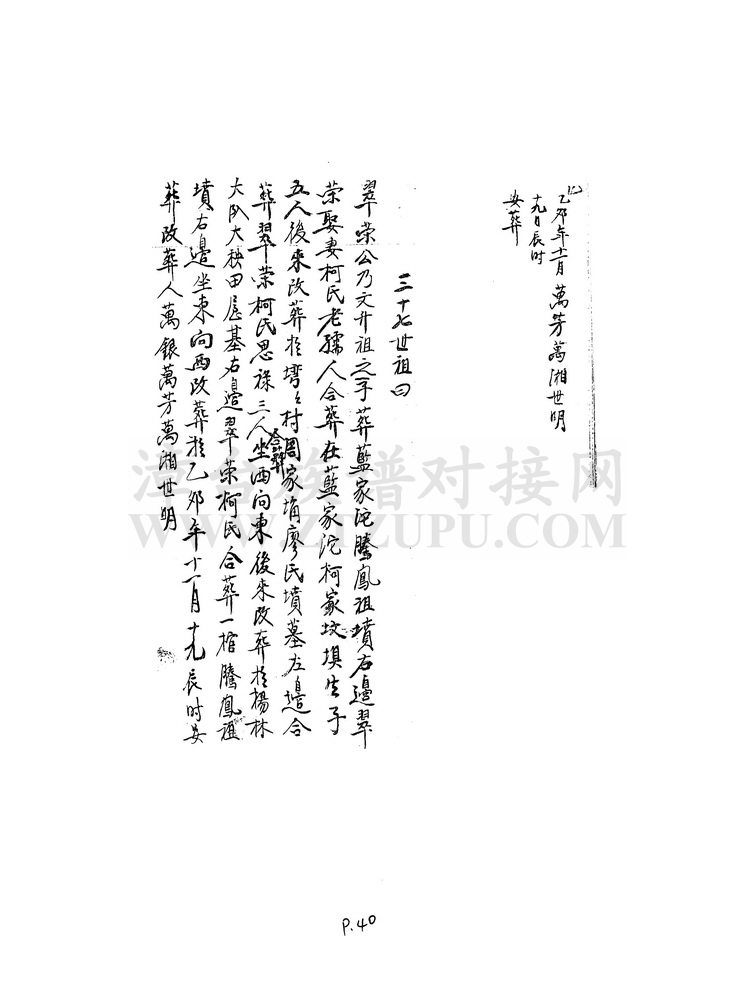 乙卯年十一月 萬芳萬湘世明
十九日辰时
安葬
三十七世祖曰
翠荣公乃文升祖之子葬藍家沱騰鳳祖墳右邉翠
荣娶妻柯氏老孺人合葬在藍家沱柯家坟埧生子
五人後來改葬於塆々村周家埆廖氏墳墓左邉合
葬翠荣柯氏思禄三人合葬坐西向東後來改葬於楊林
大队大秧田屋基右邉翠荣柯氏合葬一棺騰鳳祖
墳右邉坐東向西改葬於乙卯年十一月十九辰时安
葬改葬人萬銀萬芳萬湘世明
P.40
江苏族谱对接网
JZUPU.COM